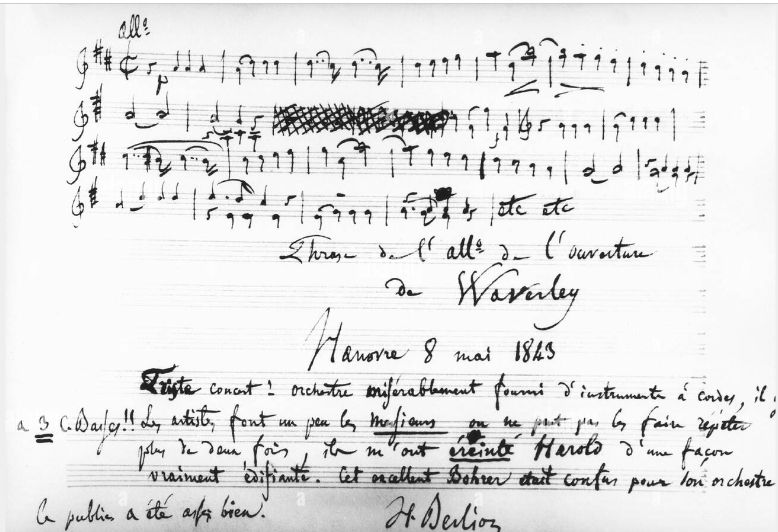 all°
p
etc etc
Phrase de l'all° de l'ouverture
de Waverley
Hanovre 8 mai 1843
Triste concert! orchestre misérablement fourni d'instruments à cordes, il
a 3 C. Basses!! Les artistes font un peu les messieurs on ne peut pas les faire répéter
plus de deux fois, ils m'ont éreinté Harold d'une façon
vraiment édifiante. Cet excellent Bohrer était confus pour son orchestre
Le public a été assez bien.
H. Berlioz